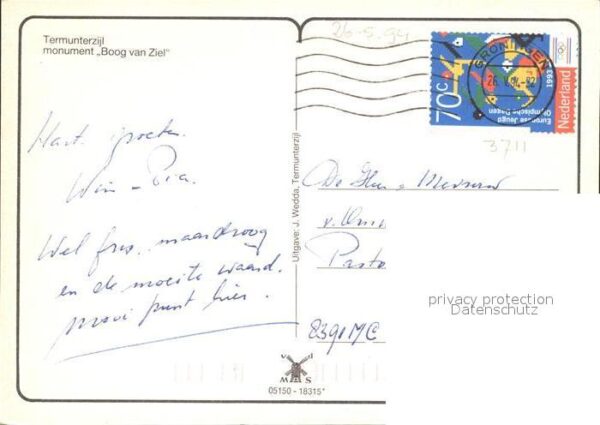 Termunterzijl
monument „Boog van Ziel"
26-5-94
GRONINGEN
26.V.94
70c
1993
Nederland
Europese Jeugd
Olympische Dagen
3711
Hart. groeten.
Wim - Pia.
Wel fris, maar droog
en de moeite waard.
mooi punt hier.
Uitgave: J. Wedda, Termunterzijl
De Hr. & Mevrouw
v.
Pasto
8391MC
privacy protection
Datenschutz
05150 - 18315*